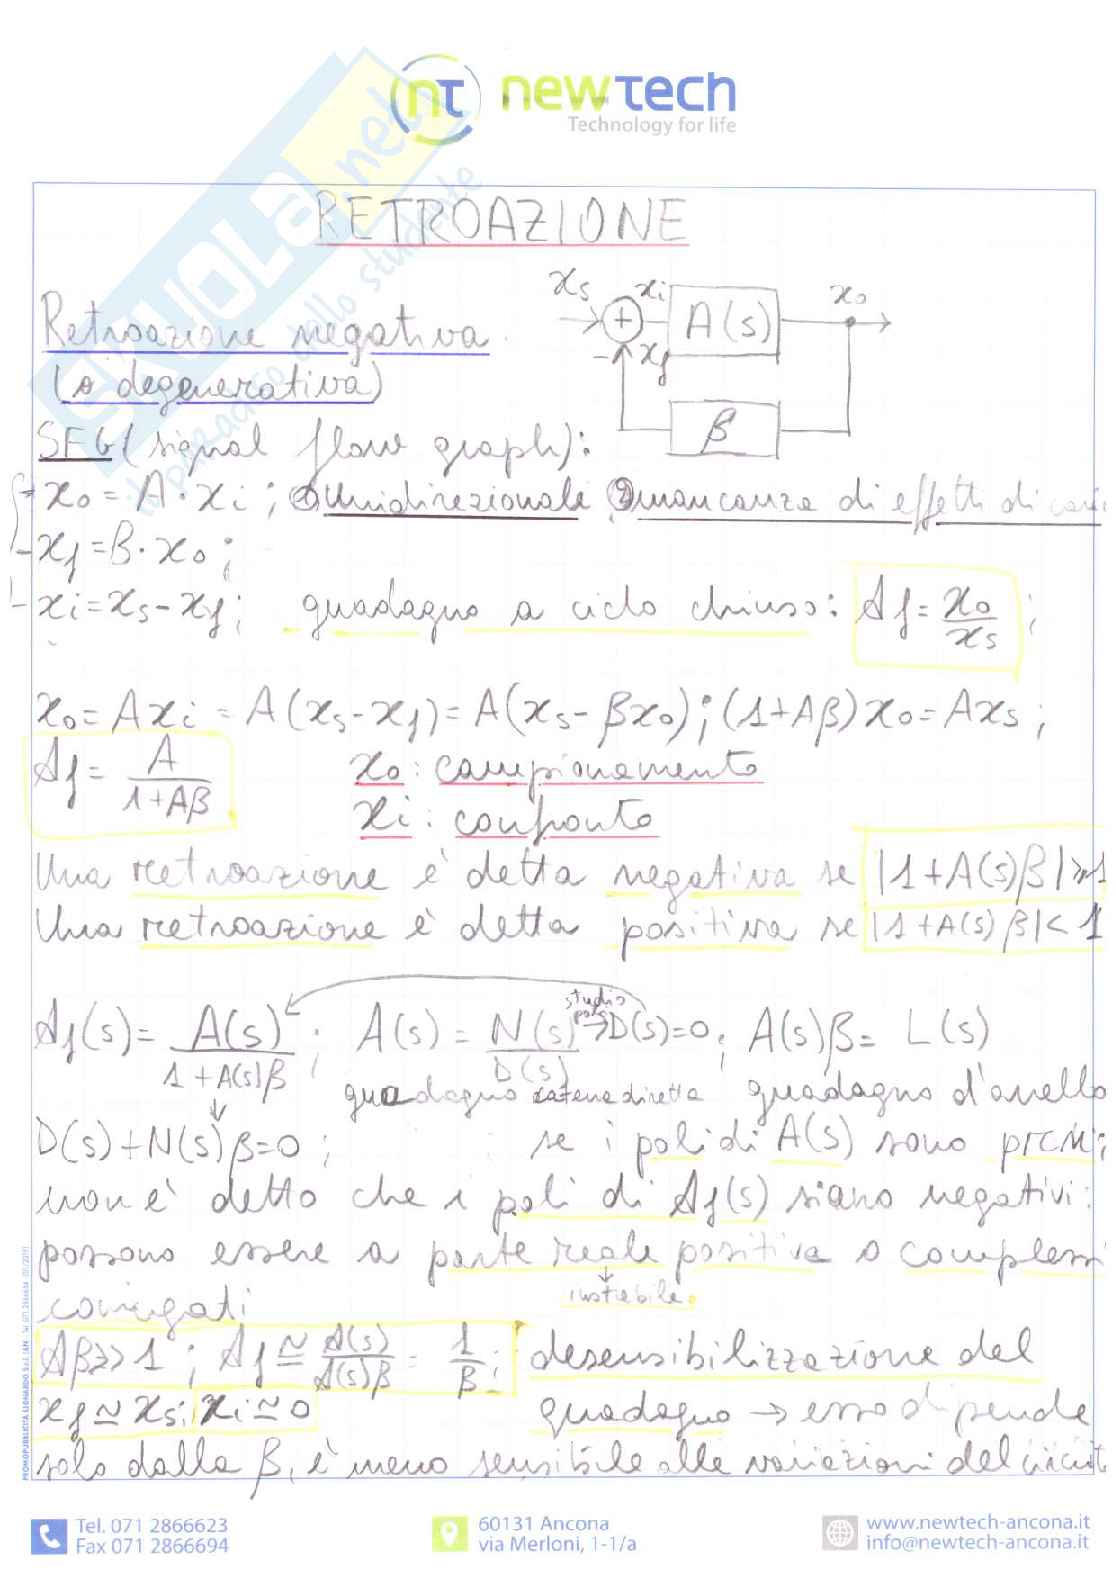 nt newtech
Technology for life
SKUOLA.net
il paradiso dello studente
RETROAZIONE
Retroazione negativa
(o degenerativa)
xs xi A(s) xo
+
- xf
β
SFG (signal flow graph):
xo = A · xi ; ① Unidirezionali ② mancanza di effetti di
xf = β · xo ;
xi = xs - xf ; guadagno a ciclo chiuso: Af = xo/xs ;
xo = Axi = A(xs - xf) = A(xs - βxo) ; (1+Aβ)xo = Axs ;
Af = A/(1+Aβ) xo : campionamento
xi : confronto
Una retroazione è detta negativa se |1+A(s)β|>1
Una retroazione è detta positiva se |1+A(s)β|<1
Af(s) = A(s)/(1+A(s)β) ; A(s) = N(s)/D(s) studio poli → D(s)=0 ; A(s)β = L(s)
guadagno catena diretta guadagno d'anello
D(s)+N(s)β=0 ; se i poli di A(s) sono
non è detto che i poli di Af(s) siano negativi:
possono essere a parte reale positiva o complessi
coniugati instabile.
Aβ>>1 ; Af ≃ A(s)/A(s)β = 1/β ; desensibilizzazione del
xf ≃ xs ; xi ≃ 0 guadagno → esso dipende
solo dalla β, è meno sensibile alle variazioni del
Tel. 071 2866623
Fax 071 2866694
60131 Ancona
via Merloni, 1-1/a
www.newtech-ancona.it
info@newtech-ancona.it